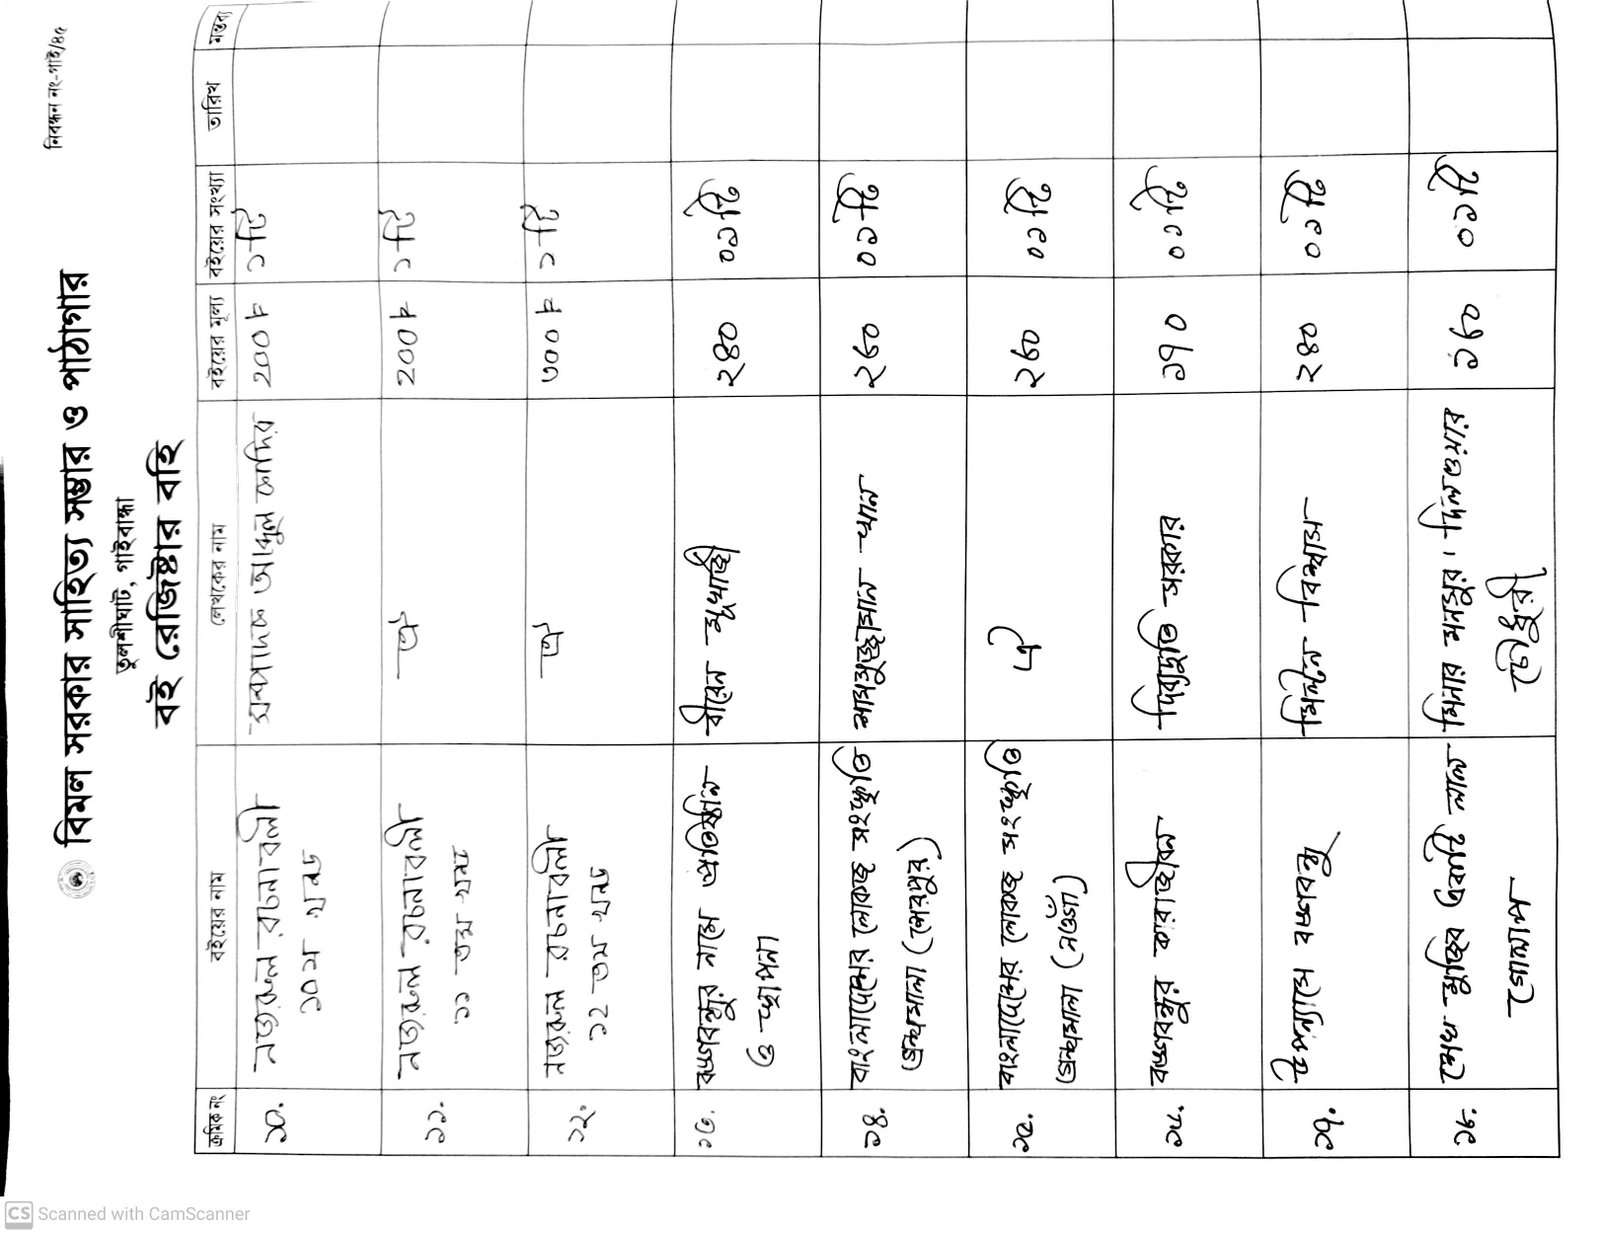 নিবন্ধন নং-গাই/৪৫
বিমল সরকার সাহিত্য সম্ভার ও পাঠাগার
তুলশীঘাট, গাইবান্ধা
বই রেজিষ্টার বহি
ক্রমিক নং বইয়ের নাম লেখকের নাম বইয়ের মূল্য বইয়ের সংখ্যা তারিখ মন্তব্য
১০. নজরুল রচনাবলী সম্পাদক আব্দুল কাদির ২০০৳ ১টি
১০ম খন্ড
১১. নজরুল রচনাবলী ঐ ২০০৳ ১টি
১১ তম খন্ড
১২. নজরুল রচনাবলী ঐ ৩০০৳ ১টি
১২ তম খন্ড
১৩. বঙ্গবন্ধুর নামে প্রতিষ্ঠান বীরেন মুখার্জী ২৪০ ০১টি
ও স্থাপনা
১৪. বাংলাদেশের লোকজ সংস্কৃতি শামসুজ্জামান খান ২৬০ ০১টি
গ্রন্থমালা (শেরপুর)
১৫. বাংলাদেশের লোকজ সংস্কৃতি ঐ ২৬০ ০১টি
গ্রন্থমালা (নওগাঁ)
১৬. বঙ্গবন্ধুর কারাজীবন দিব্যদ্যুতি সরকার ১৭০ ০১টি
১৭. উপন্যাসে বঙ্গবন্ধু মিল্টন বিশ্বাস ২৪০ ০১টি
১৮. শেখ মুজিব একটি লাল মিনার মনসুর। দিলওয়ার ১৬০ ০১টি
গোলাপ চৌধুরী
CS Scanned with CamScanner